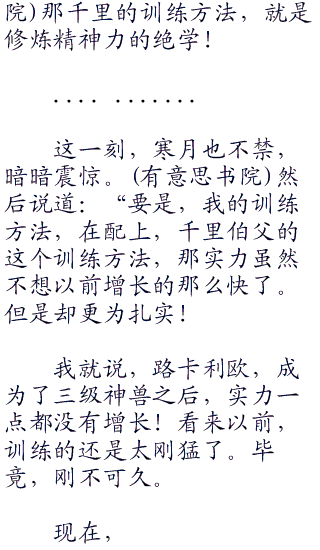 院)那千里的训练方法，就是
修炼精神力的绝学！
.... .......
这一刻，寒月也不禁，
暗暗震惊。(有意思书院)然
后说道：“要是，我的训练
方法，在配上，千里伯父的
这个训练方法，那实力虽然
不想以前增长的那么快了。
但是却更为扎实！
我就说，路卡利欧，成
为了三级神兽之后，实力一
点都没有增长！看来以前，
训练的还是太刚猛了。毕
竟，刚不可久。
现在，